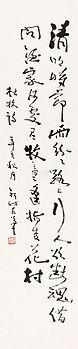 清明時節雨紛紛路上行人欲斷魂借
問酒家何處有牧童遙指杏花村
杜牧詩